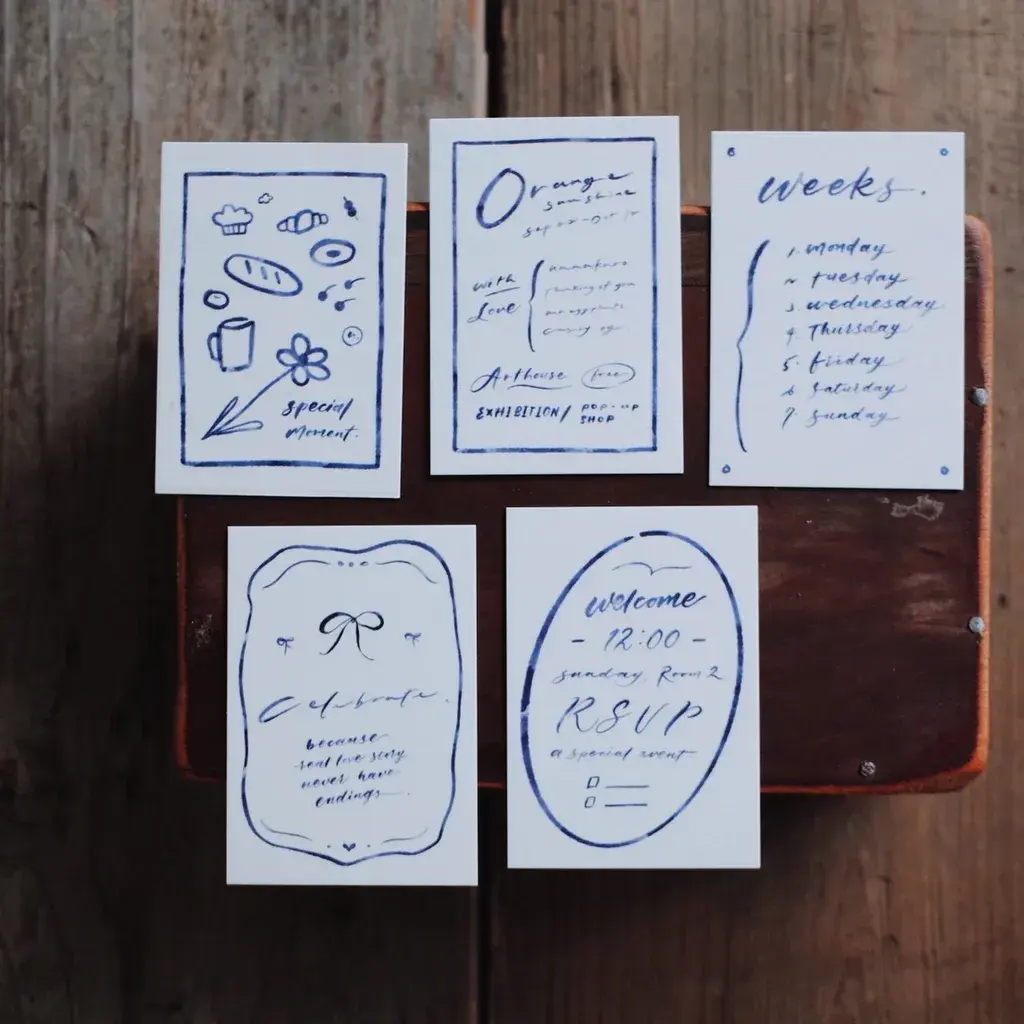 special
moment.
Orange
sunshine
with
Love
thinking of you
Arthouse free
EXHIBITION/ POP-UP
SHOP
weeks.
1. monday
2 tuesday
3 wednesday
4 Thursday
5. friday
6 saturday
7. sunday
Celebrate.
because
real love story
never have
endings.
welcome
- 12:00 -
sunday, Room 2
RSVP
a special event